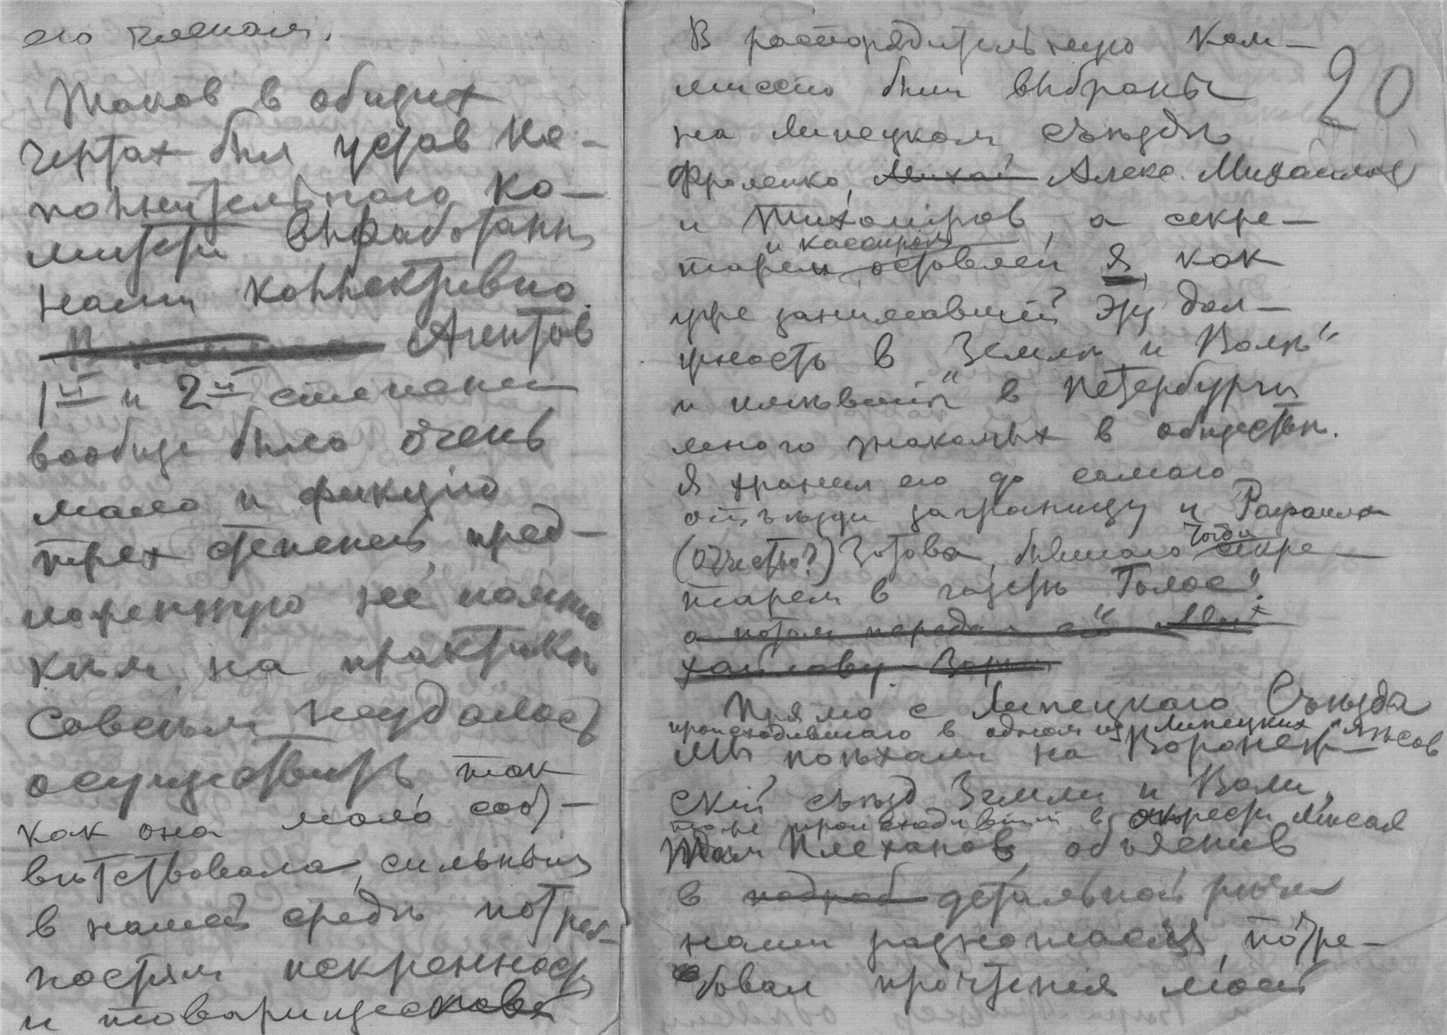 его членом.
Таков в общих
чертах был устав Ис-
полнительного Ко-
митета выработанн
нами коллективно.
Агентов
1ой и 2ой степеней
вообще было очень
мало и фикцію
трех степеней, пред-
ложенную ее
на практикѣ
совсѣм не удалось
осуществить, так
как она мало соот-
вѣтствовала сильным
в нашей средѣ потреб-
ностям искренности
и товарищескове
20
В распорядительную Ком-
миссію были выбраны
на Липецком съѣздѣ
Фроленко, Михай Алекс. Михайлов
и Тихоміров, а секре-
и кассиром
тарем оставлен я, как
уже занимавшій эту дол-
жность в "Землѣ и Волѣ"
и имѣвшій в Петербургѣ
много знакомых в обществѣ.
Я хранил его до самаго
отъѣзда заграницу у Рафаила
(отчество?) Зотова, бывшаго тогда секре-
тарем в газетѣ "Голос".
а потом передал его Ми-
хайлову
Прямо с Липецкаго Съѣзда
происходившаго в одном из Липецких лѣсов
мы поѣхали на Воронеж-
скій съѣзд Земли и Воли,
тоже происходившій в окрест лѣсах
Там Плеханов, объяснив
в подроб детальной рѣчи
наши разногласія, потре-
бовал прочтенія моей